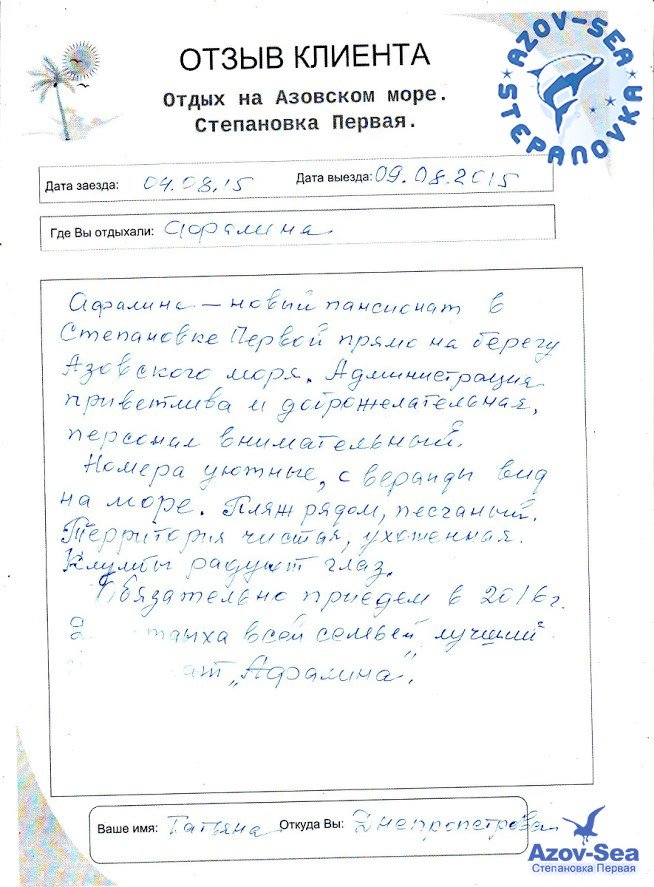 ОТЗЫВ КЛИЕНТА
AZOV-SEA
STEPANOVKA
Отдых на Азовском море.
Степановка Первая.
Дата заезда: 04.08.15 Дата выезда: 09.08.2015
Где Вы отдыхали: Афалина
Афалина — новый пансионат в
Степановке Первой прямо на берегу
Азовского моря. Администрация
приветлива и доброжелательная,
персонал внимательный.
Номера уютные, с веранды вид
на море. Пляж рядом, песчаный.
Территория чистая, ухоженная.
Клумбы радуют глаз.
Обязательно приедем в 2016г.
всей семьей лучший
"Афалина".
Ваше имя: Татьяна Откуда Вы: Днепропетровск
Azov-Sea
Степановка Первая